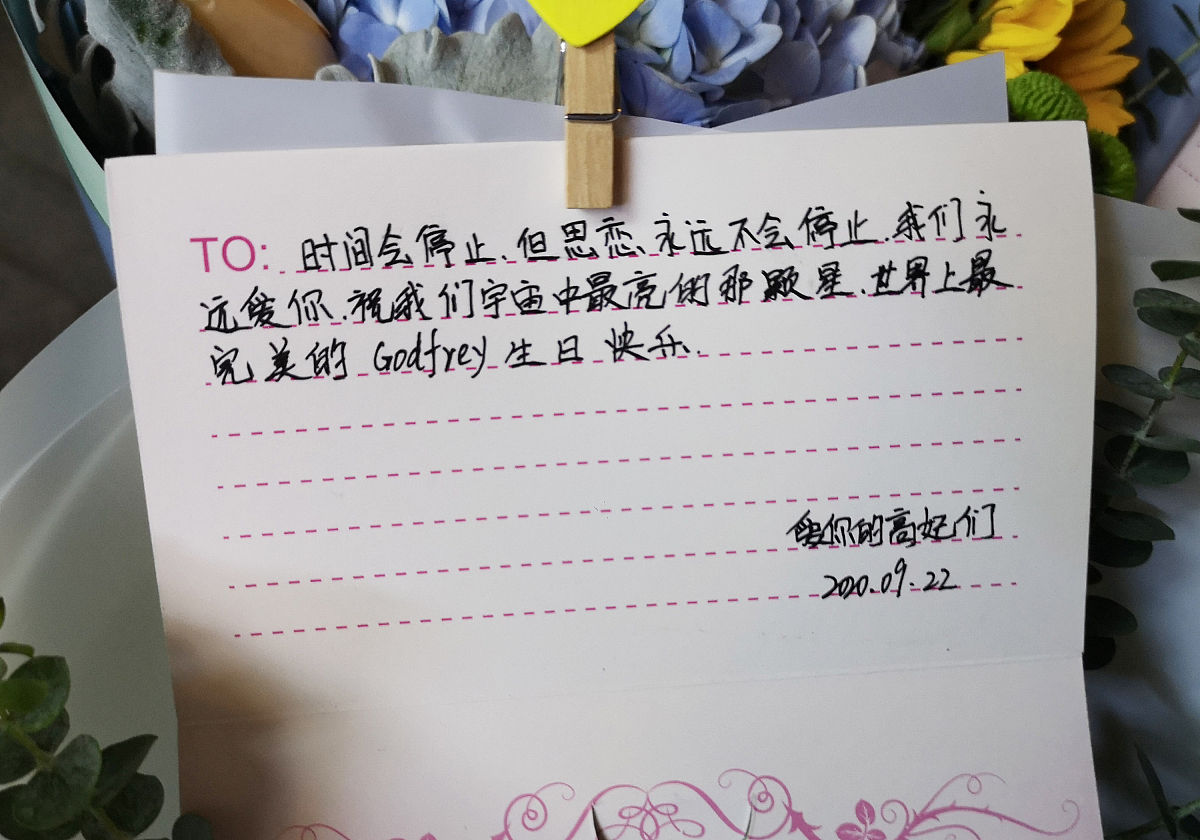 TO: 时间会停止.但思恋永远不会停止.我们永
远爱你.祝我们宇宙中最亮的那颗星.世界上最
完美的 Godfrey 生日快乐.
爱你的高妃们
2020.09.22